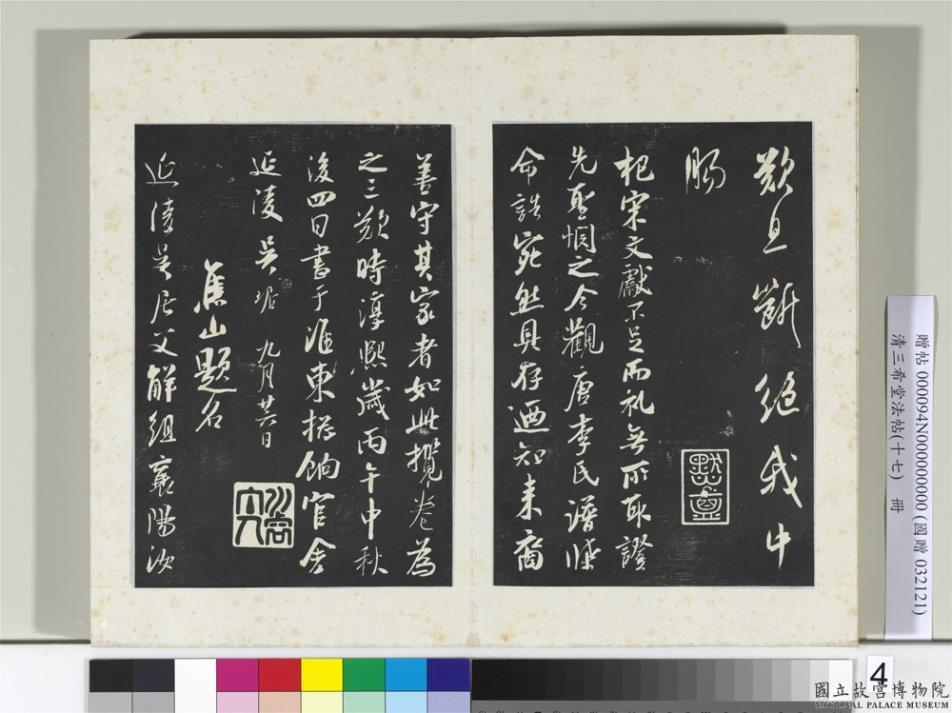 歎且斷絕我中
腸
杞宋文獻不足而礼無所取證
先聖惘之今觀唐李氏譜牒
命誥宛然具存迺知来裔
善守其家者如此攬卷為
之三歎時淳熙歲丙午中秋
後四日書于淮東捴餉官舍
延陵吳琚 九月廿八日
焦山題名
延陵吳居父解組襄陽汝
贈帖 000094N000000000 (國贈 032121)
清三希堂法帖(十七) 冊
4
國立故宮博物院
NATIONAL PALACE MUSEUM